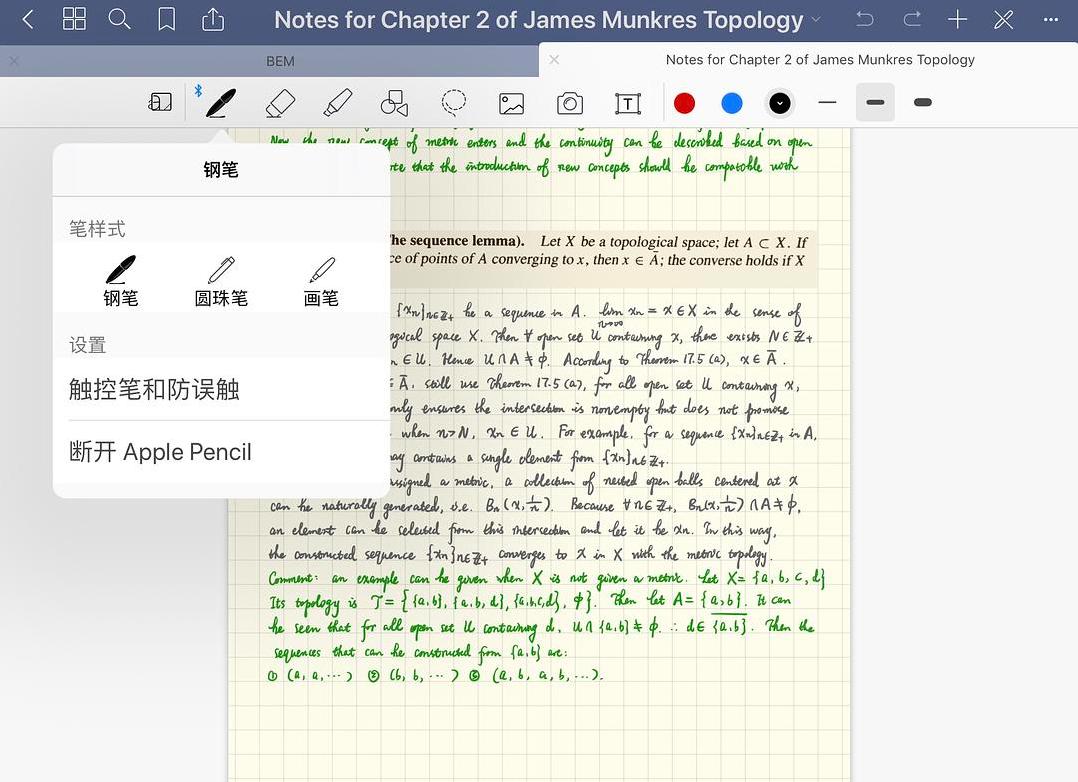 Notes for Chapter 2 of James Munkres Topology
BEM
Notes for Chapter 2 of James Munkres Topology
T
钢笔
笔样式
钢笔 圆珠笔 画笔
设置
触控笔和防误触
断开 Apple Pencil
Now the new concept of metric enters and the continuity can be described based on open
that the introduction of new concepts should be compatible with
he sequence lemma). Let X be a topological space; let A ⊂ X. If
ce of points of A converging to x, then x ∈ Ā; the converse holds if X
{xn}n∈Z+ be a sequence in A. lim n→∞ xn = x ∈ X in the sense of
ogical space X. Then ∀ open set U containing x, there exists N ∈ Z+
n ∈ U. Hence U ∩ A ≠ ϕ. According to Theorem 17.5 (a), x ∈ Ā.
Ā, still use Theorem 17.5 (a), for all open set U containing x,
only ensures the intersection is nonempty but does not promise
when n>N, xn ∈ U. For example, for a sequence {xn}n∈Z+ in A,
may contains a single element from {xn}n∈Z+.
assigned a metric, a collection of nested open balls centered at x
can be naturally generated, i.e. Bn(x, 1/n). Because ∀ n ∈ Z+, Bn(x, 1/n) ∩ A ≠ ϕ,
an element can be selected from this intersection and let it be xn. In this way,
the constructed sequence {xn}n∈Z+ converges to x in X with the metric topology.
Comment: an example can be given when X is not given a metric. Let X = {a, b, c, d}
Its topology is T = { {a,b}, {a,b,d}, {a,b,c,d}, ϕ }. Then let A = {a,b}. It can
be seen that for all open set U containing d, U ∩ {a,b} ≠ ϕ. ∴ d ∈ {a,b}. Then the
sequences that can be constructed from {a,b} are:
① (a, a, ···) ② (b, b, ···) ③ (a, b, a, b, ···).